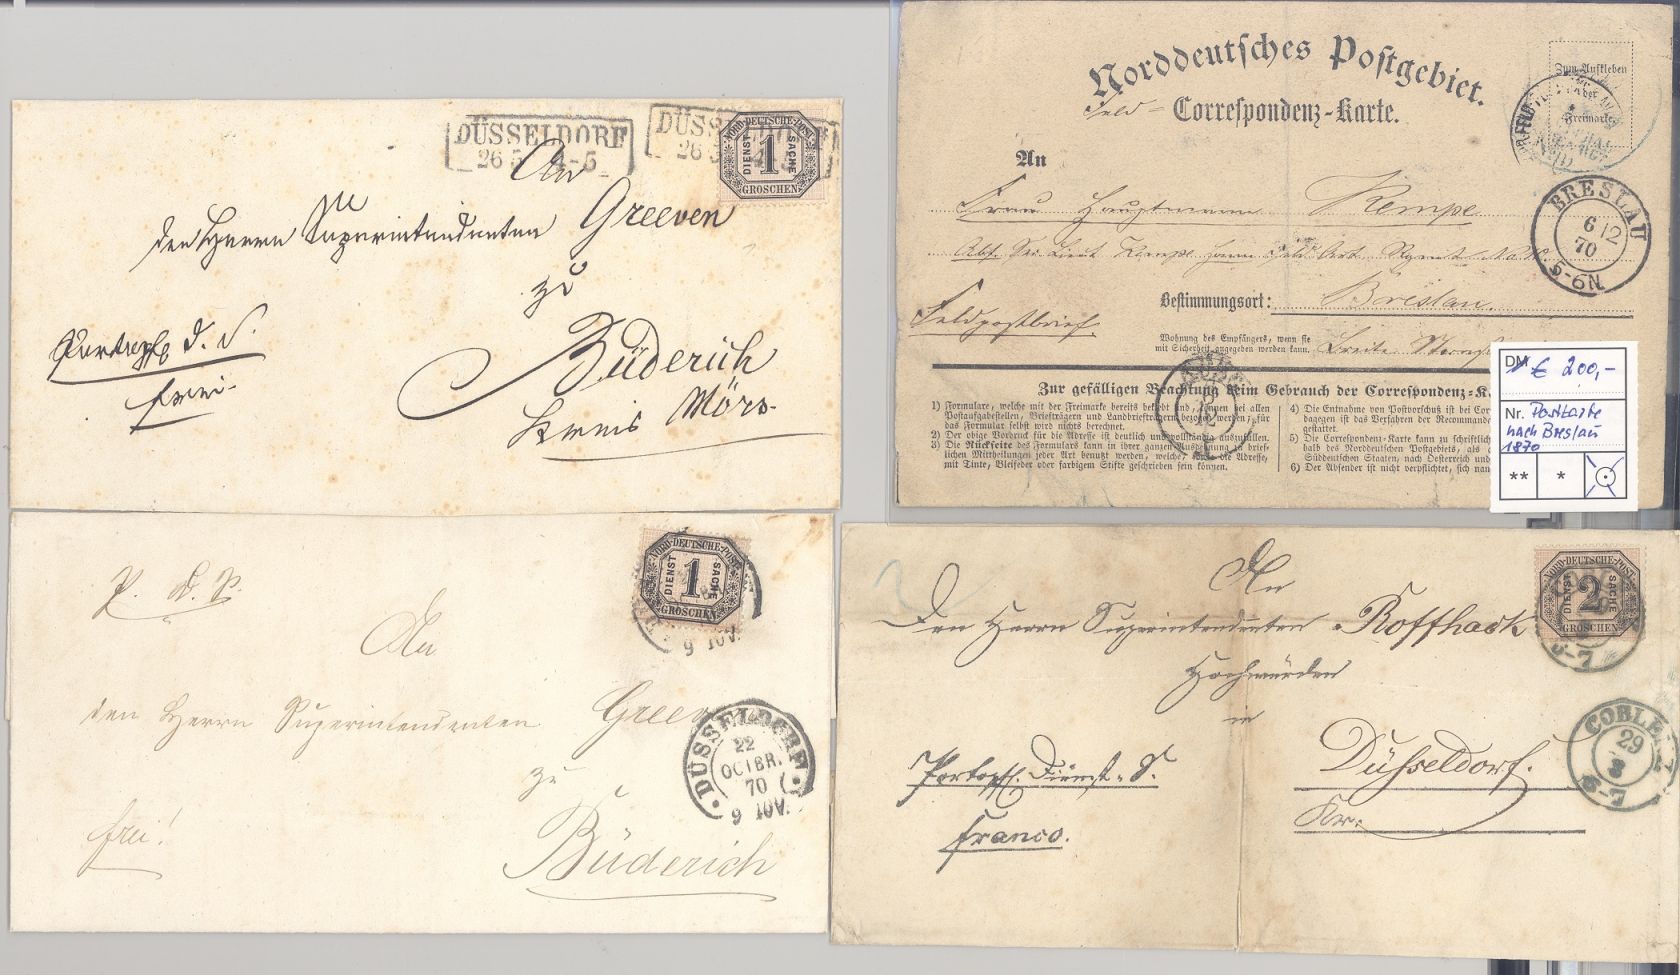 DÜSSELDORF
26 5 4-5
DÜSSELDORF
26 5 4-5
NORD-DEUTSCHE-POST
DIENST 1 SACHE
GROSCHEN
An
den Herrn Superintendenten Greeven
zu
Büderich
Kreis Mörs.
frei.
Norddeutsches Postgebiet.
Feld- Correspondenz-Karte.
Zum Aufkleben
der
Freimarke.
An
Frau Hauptmann Kempe
BRESLAU
6 12
70
5-6N
Bestimmungsort: Breslau.
Feldpostbrief.
Wohnung des Empfängers, wenn sie
mit Sicherheit angegeben werden kann.
Zur gefälligen Beachtung beim Gebrauch der Correspondenz-K
1) Formulare, welche mit der Freimarke bereits beklebt sind, können bei allen
Postaufgabestellen, Briefträgern und Landbriefträgern bezogen werden; für
das Formular selbst wird nichts berechnet.
2) Der obige Vordruck für die Adresse ist deutlich und vollständig auszufüllen.
3) Die Rückseite des Formulars kann in ihrer ganzen Ausdehnung zu brief-
lichen Mittheilungen jeder Art benutzt werden, welche, wie die Adresse,
mit Tinte, Bleifeder oder farbigem Stifte geschrieben sein können.
4) Die Entnahme von Postvorschuß ist bei Cor
dagegen ist das Verfahren der Recommand
gestattet.
5) Die Correspondenz-Karte kann zu schriftlich
halb des Norddeutschen Postgebiets, als
Süddeutschen Staaten, nach Oesterreich und
6) Der Absender ist nicht verpflichtet, sich nam
DM € 200,-
Nr. Postkarte
nach Breslau
1870
** *
NORD-DEUTSCHE-POST
DIENST 1 SACHE
GROSCHEN
P. d. S.
An
den Herrn Superintendenten Greeven
zu
Büderich
frei!
DÜSSELDORF
22
OCTBR.
70
NORD-DEUTSCHE-POST
DIENST 2 SACHE
GROSCHEN
6-7
An
Den Herrn Superintendenten Roffhack
Hochwürden
in
Düsseldorf.
Portopfl. Dienst-S.
franco.
COBLENZ
29
8
6-7